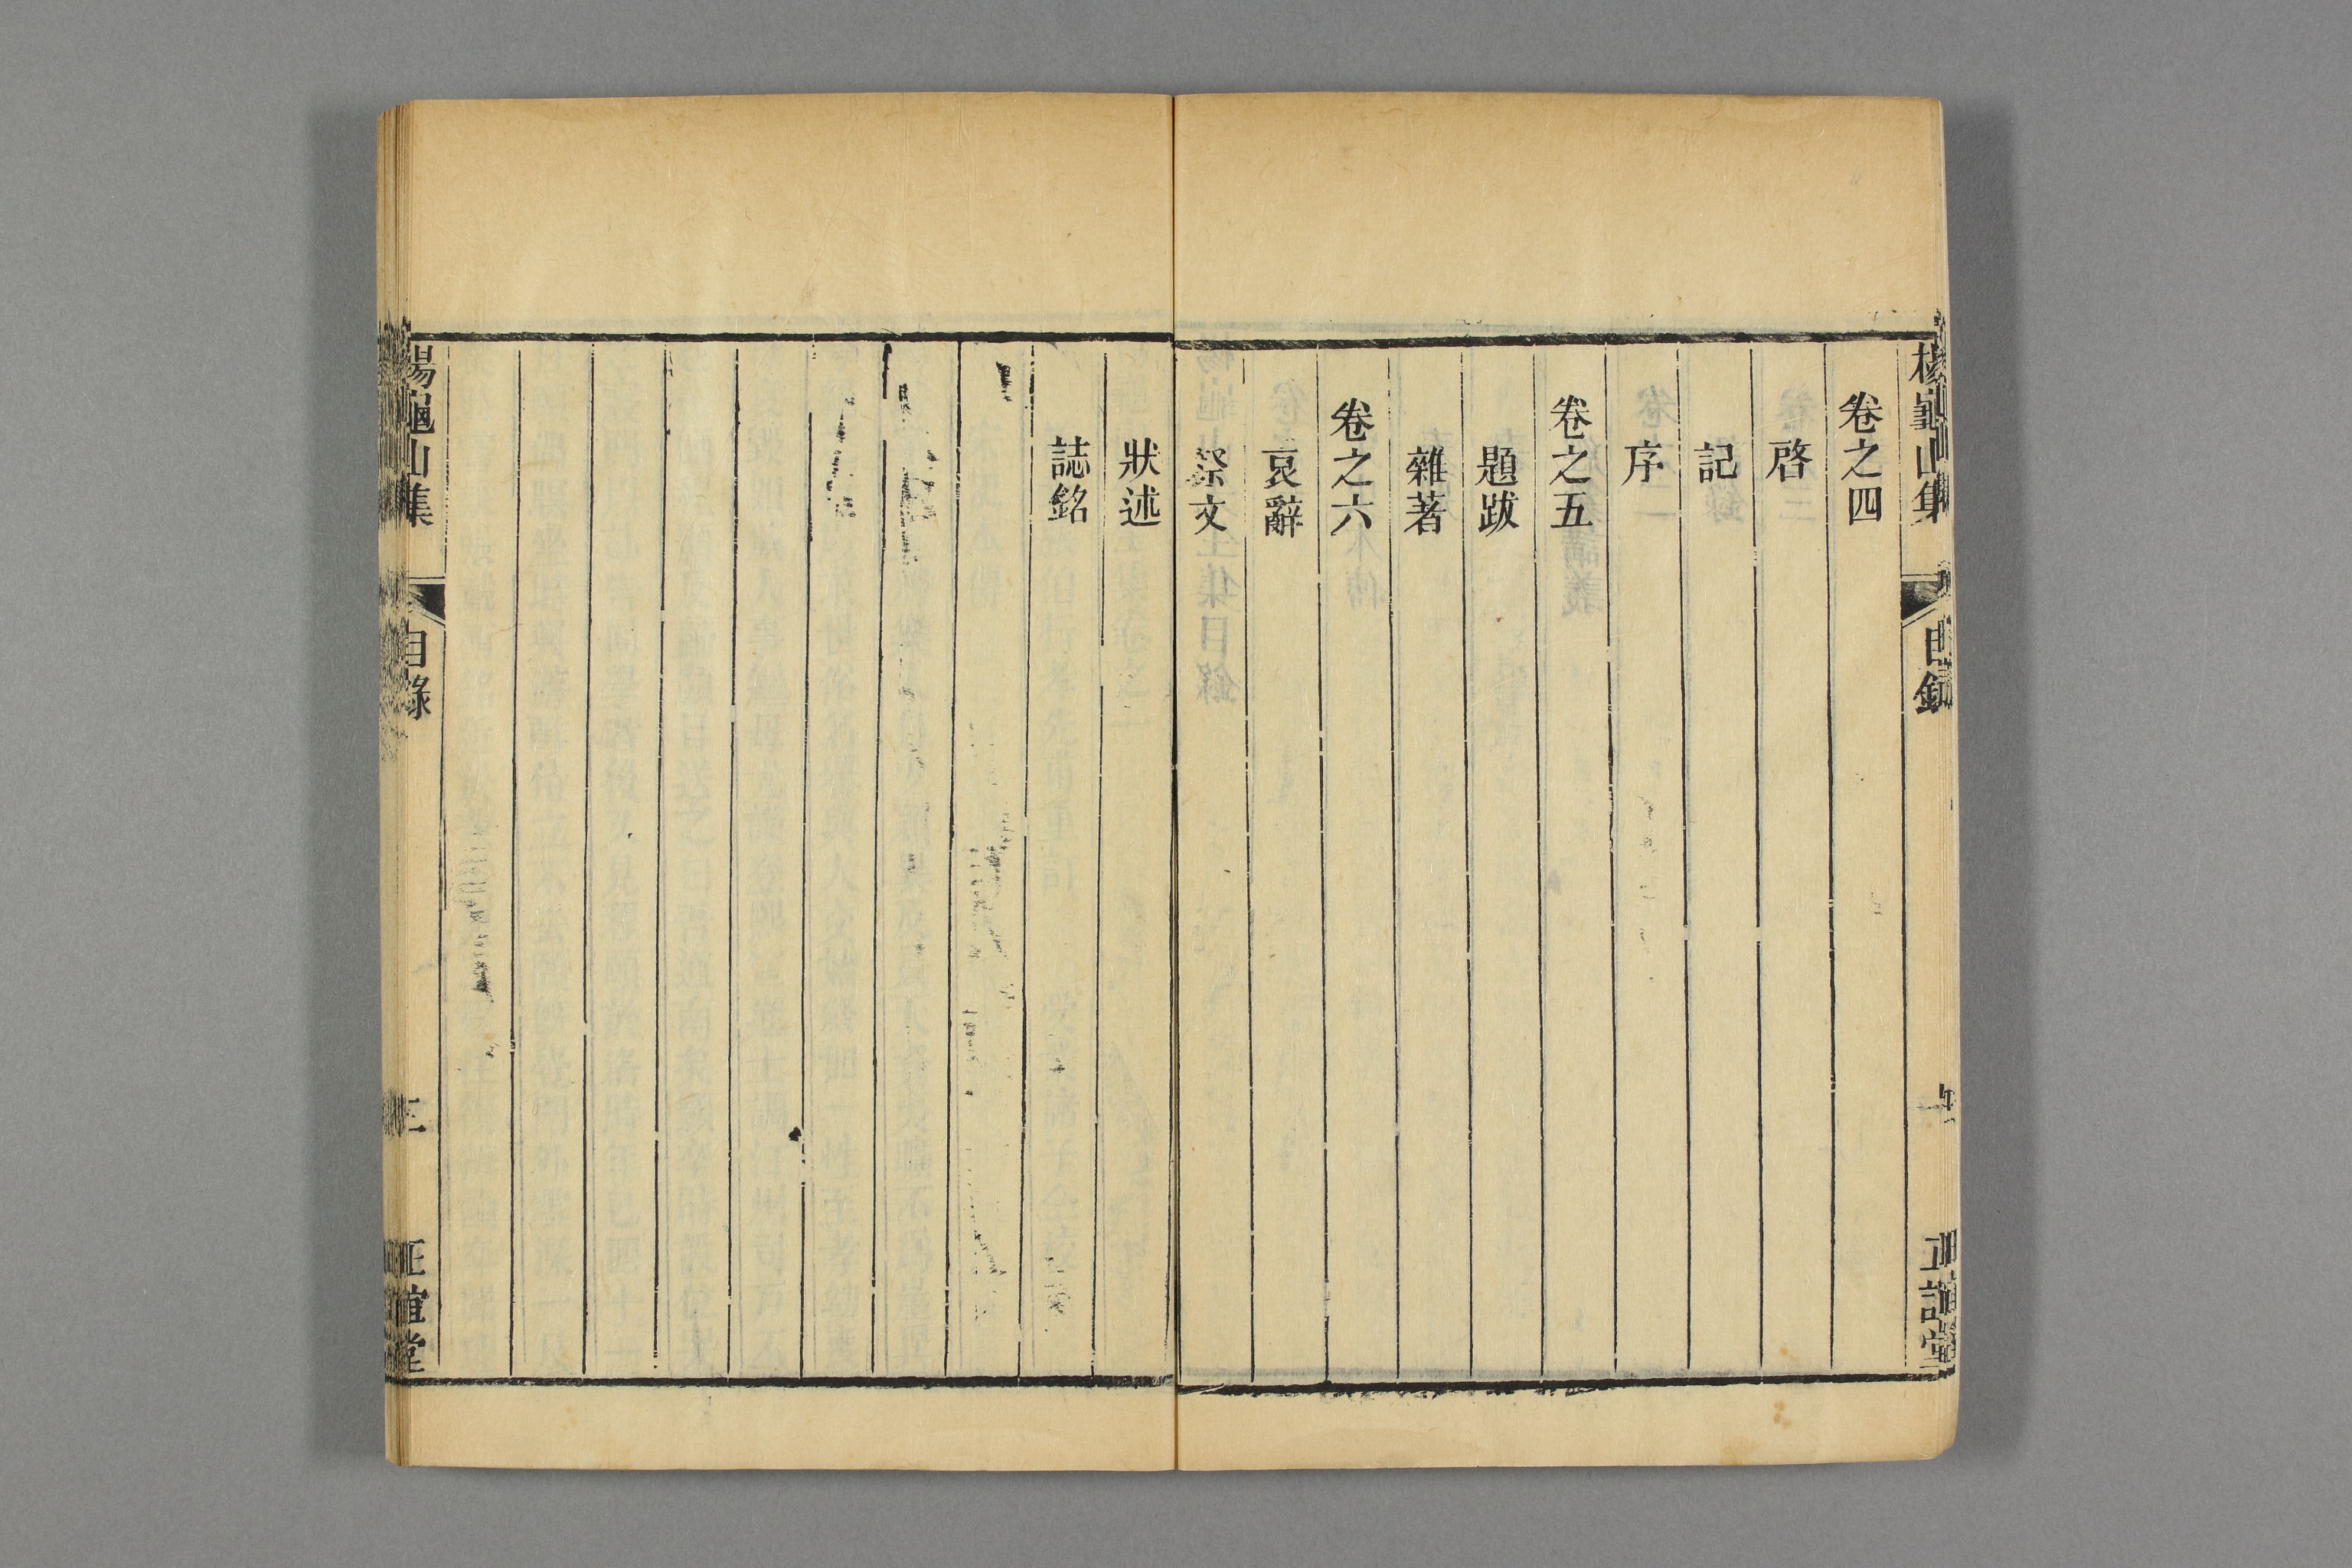 楊龜山集
目錄
正誼堂
卷之四
啓
記
序
卷之五
題跋
雜著
卷之六
哀辭
祭文
狀述
誌銘
楊龜山集
目錄
二
正誼堂